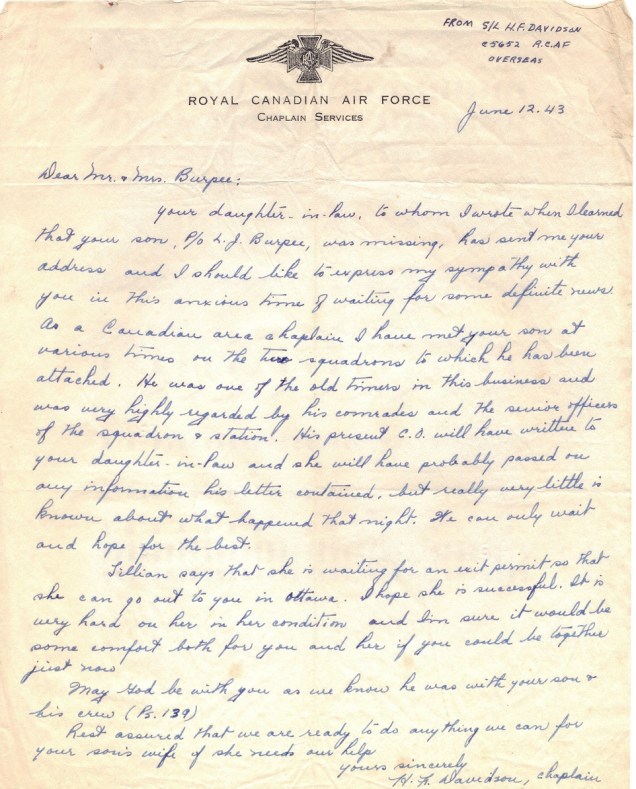 FROM S/L H.F. DAVIDSON
C5652 R.C.A.F
OVERSEAS
ROYAL CANADIAN AIR FORCE
CHAPLAIN SERVICES
June 12.43
Dear Mr. & Mrs. Burpee:
Your daughter-in-law, to whom I wrote when I learned
that your son, P/O L.J. Burpee, was missing, has sent me your
address and I should like to express my sympathy with
you in this anxious time of waiting for some definite news.
As a Canadian area chaplain I have met your son at
various times on the two squadrons to which he has been
attached. He was one of the old timers in this business and
was very highly regarded by his comrades and the senior officers
of the squadron & station. His present C.O. will have written to
your daughter-in-law and she will have probably passed on
any information his letter contained, but really very little is
known about what happened that night. We can only wait
and hope for the best.
Lillian says that she is waiting for an exit permit so that
she can go out to you in Ottawa. I hope she is successful. It is
very hard on her in her condition and I'm sure it would be
some comfort both for you and her if you could be together
just now
May God be with you as we know he was with your son &
his crew (Ps. 139)
Rest assured that we are ready to do anything we can for
your son's wife if she needs our help
Yours sincerely
H. F. Davidson, chaplain